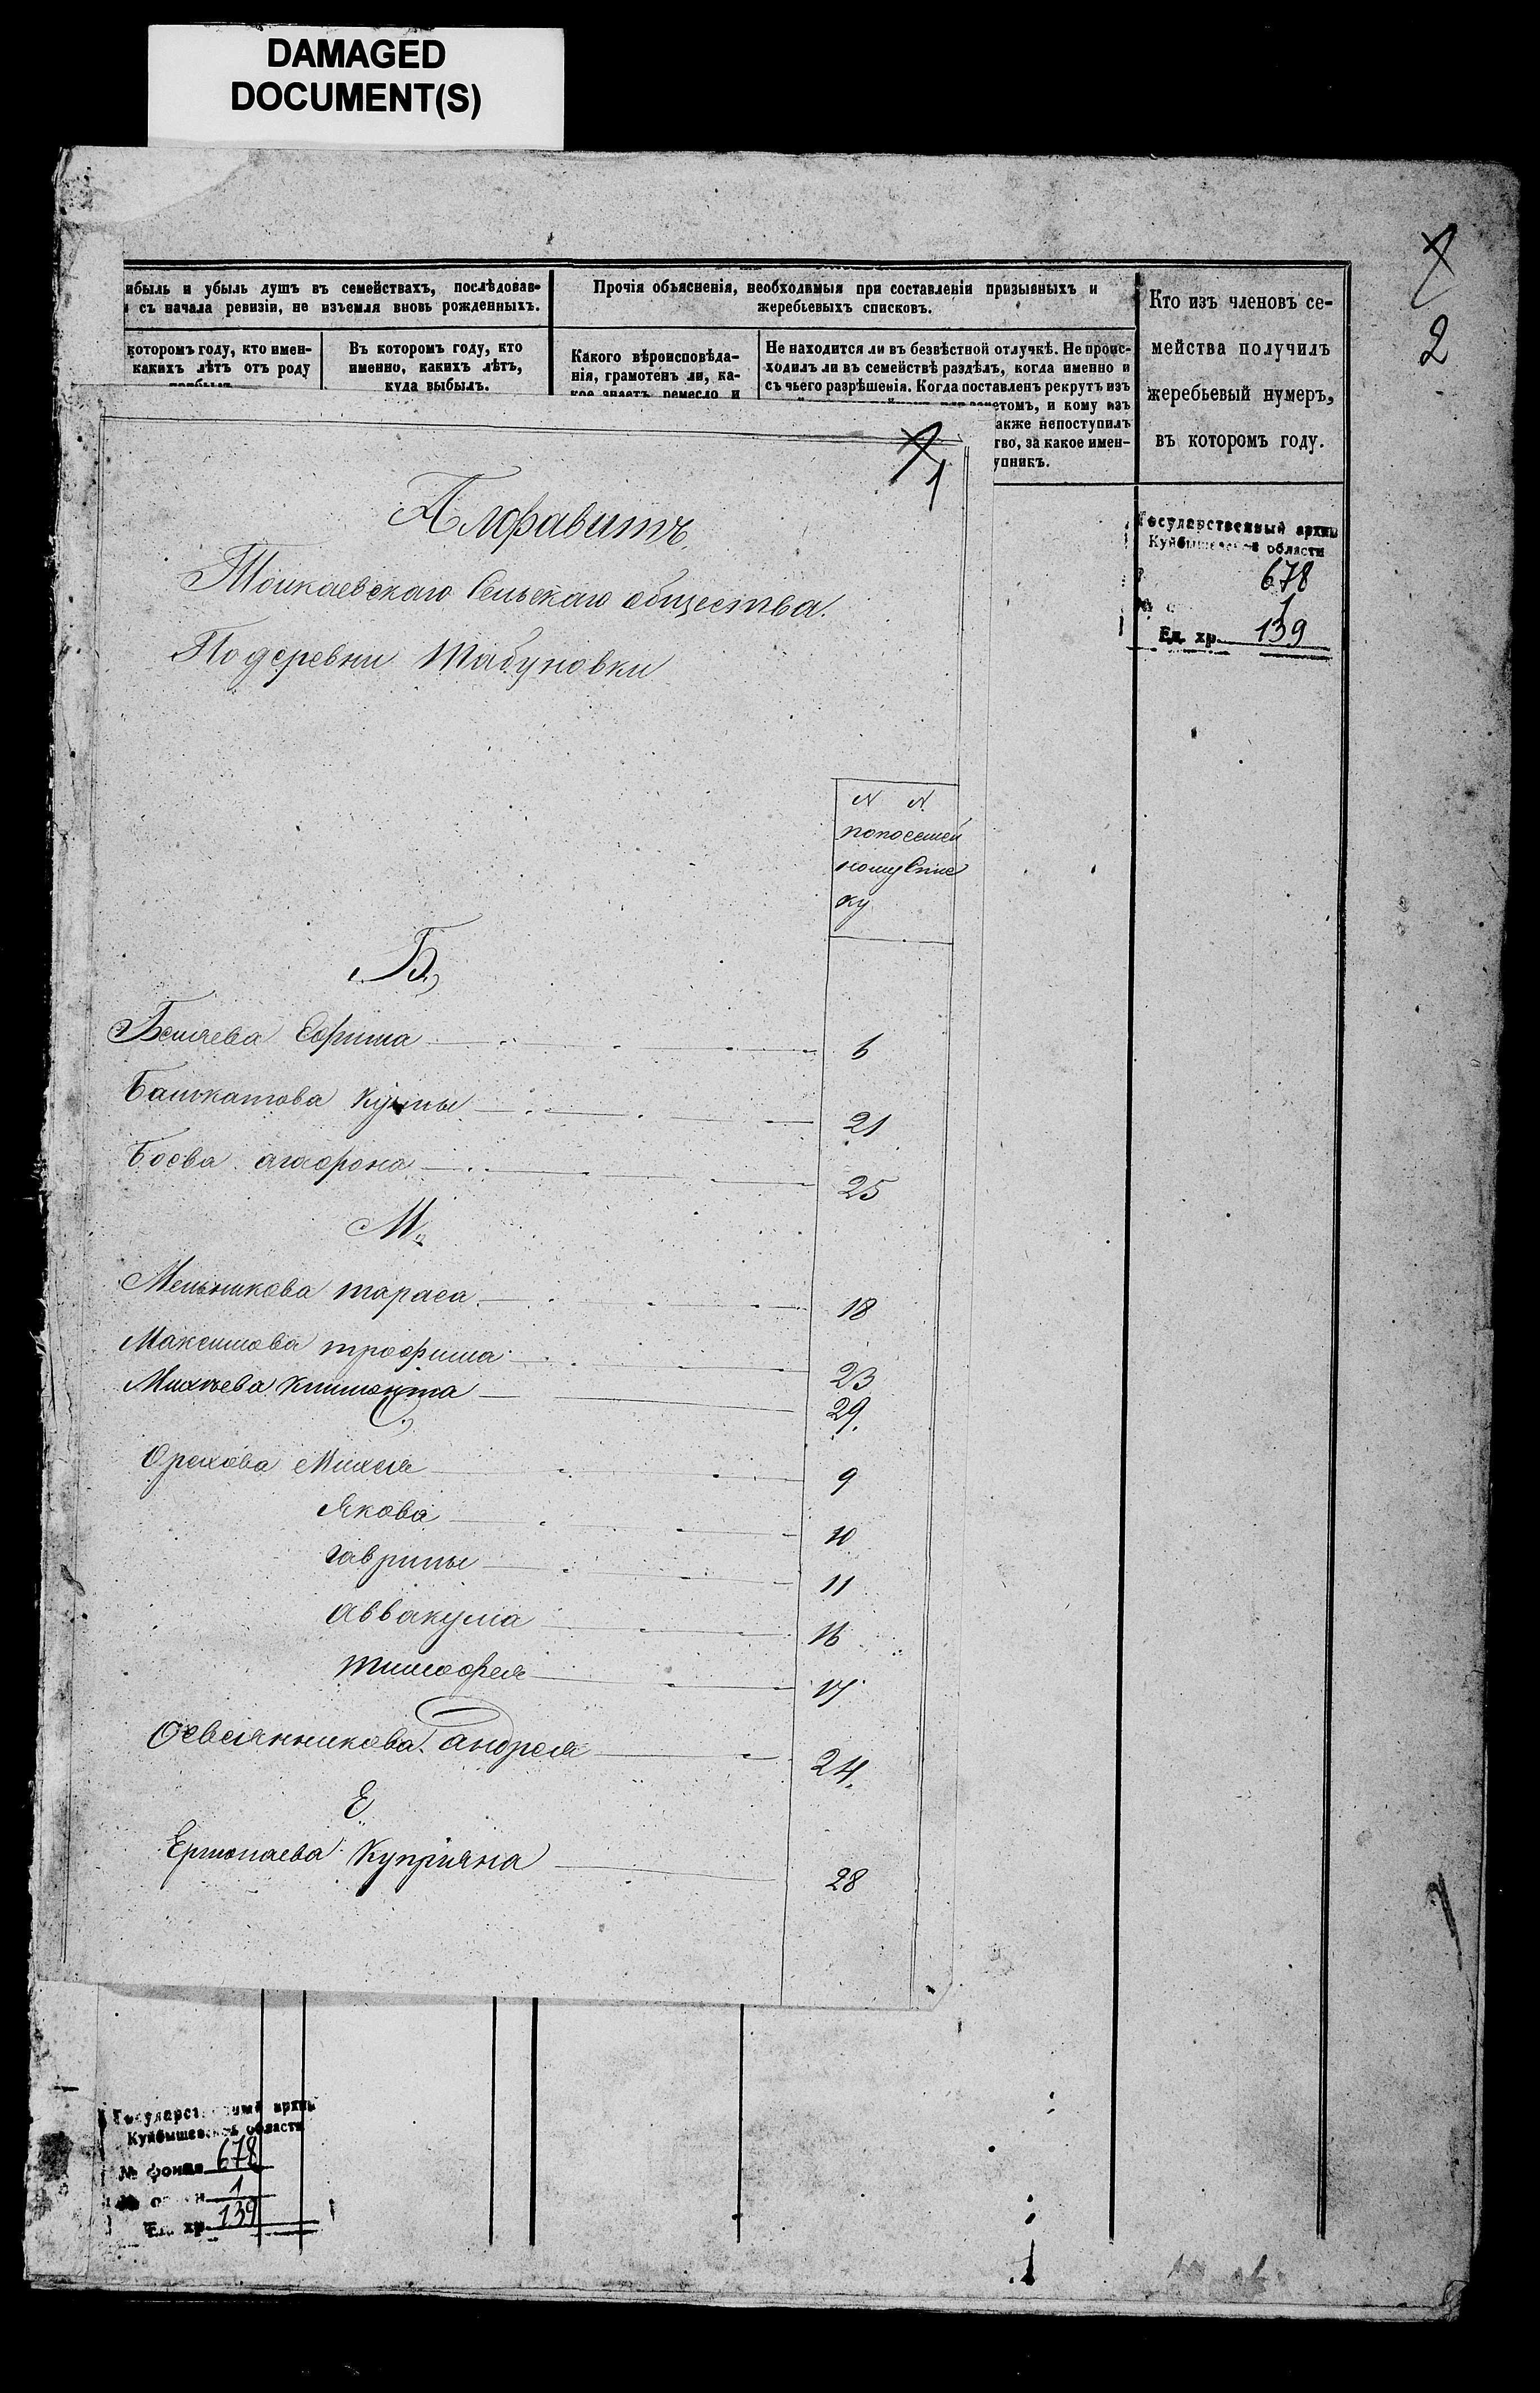 DAMAGED
DOCUMENT(S)
ибыль и убыль душъ въ семействахъ, послѣдовав-
съ начала ревизіи, не изъемля вновь рожденныхъ.
Прочія объясненія, необходимыя при составленіи призывныхъ и
жеребьевыхъ списковъ.
Кто изъ членовъ се-
мейства получилъ
жеребьевый нумеръ,
въ которомъ году.
2
которомъ году, кто имен-
какихъ лѣтъ отъ роду
Въ которомъ году, кто
именно, какихъ лѣтъ,
куда выбылъ.
Какого вѣроисповѣда-
нія, грамотенъ ли, ка-
кое знаетъ ремесло и
Не находится ли въ безвѣстной отлучкѣ. Не проис-
ходилъ ли въ семействѣ раздѣлъ, когда именно и
съ чьего разрѣшенія. Когда поставленъ рекрутъ изъ
етомъ, и кому изъ
акже непоступилъ
тво, за какое имен-
упникъ.
1
Алфавитъ
Тошкаевскаго Сельскаго общества.
По деревни Табуновки
N N
по посемей
ному Спис
ку
Б
Беляева Ефима 6
Башкатова Кузмы 21
Боева агафона 25
М
Мельникова тараса 18
Максимова трофима 23
Михѣева Климонта 29.
О
Орехова Михея 9
Якова 10
гаврилы 11
аввакума 16
тимофея 17
Овсянникова андрея 24.
Е
Ермолаева Куприяна 28
Государственный архив
Куйбышевской области
678
1
Ед. хр. 139
Государственный архив
Куйбышевской области
№ фонда 678
№ описи 1
Ед. хр. 139